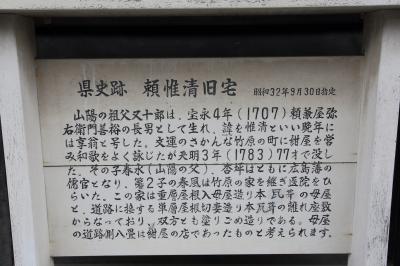 県史跡 頼惟清旧宅 昭和32年9月30日指定
山陽の祖父又十郎は、宝永4年(1707)頼兼屋弥
右衛門善裕の長男として生れ、諱を惟清といい晩年に
は享翁と号した。文運のさかんな竹原の町に紺屋を営
み和歌をよく詠じたが天明3年(1783)77才で没し
た。その子春水(山陽の父)、杏坪はともに広島藩の
儒官となり、第2子の春風は竹原の家を継ぎ医院をひ
らいた。この家は重層屋根入母屋造り本瓦葺の母屋
と、道路に接する単層屋根切妻造り本瓦葺の離れ座敷
からなっており、双方とも塗りごめ造りである。母屋
の道路側八畳は紺屋の店であったものと考えられます。